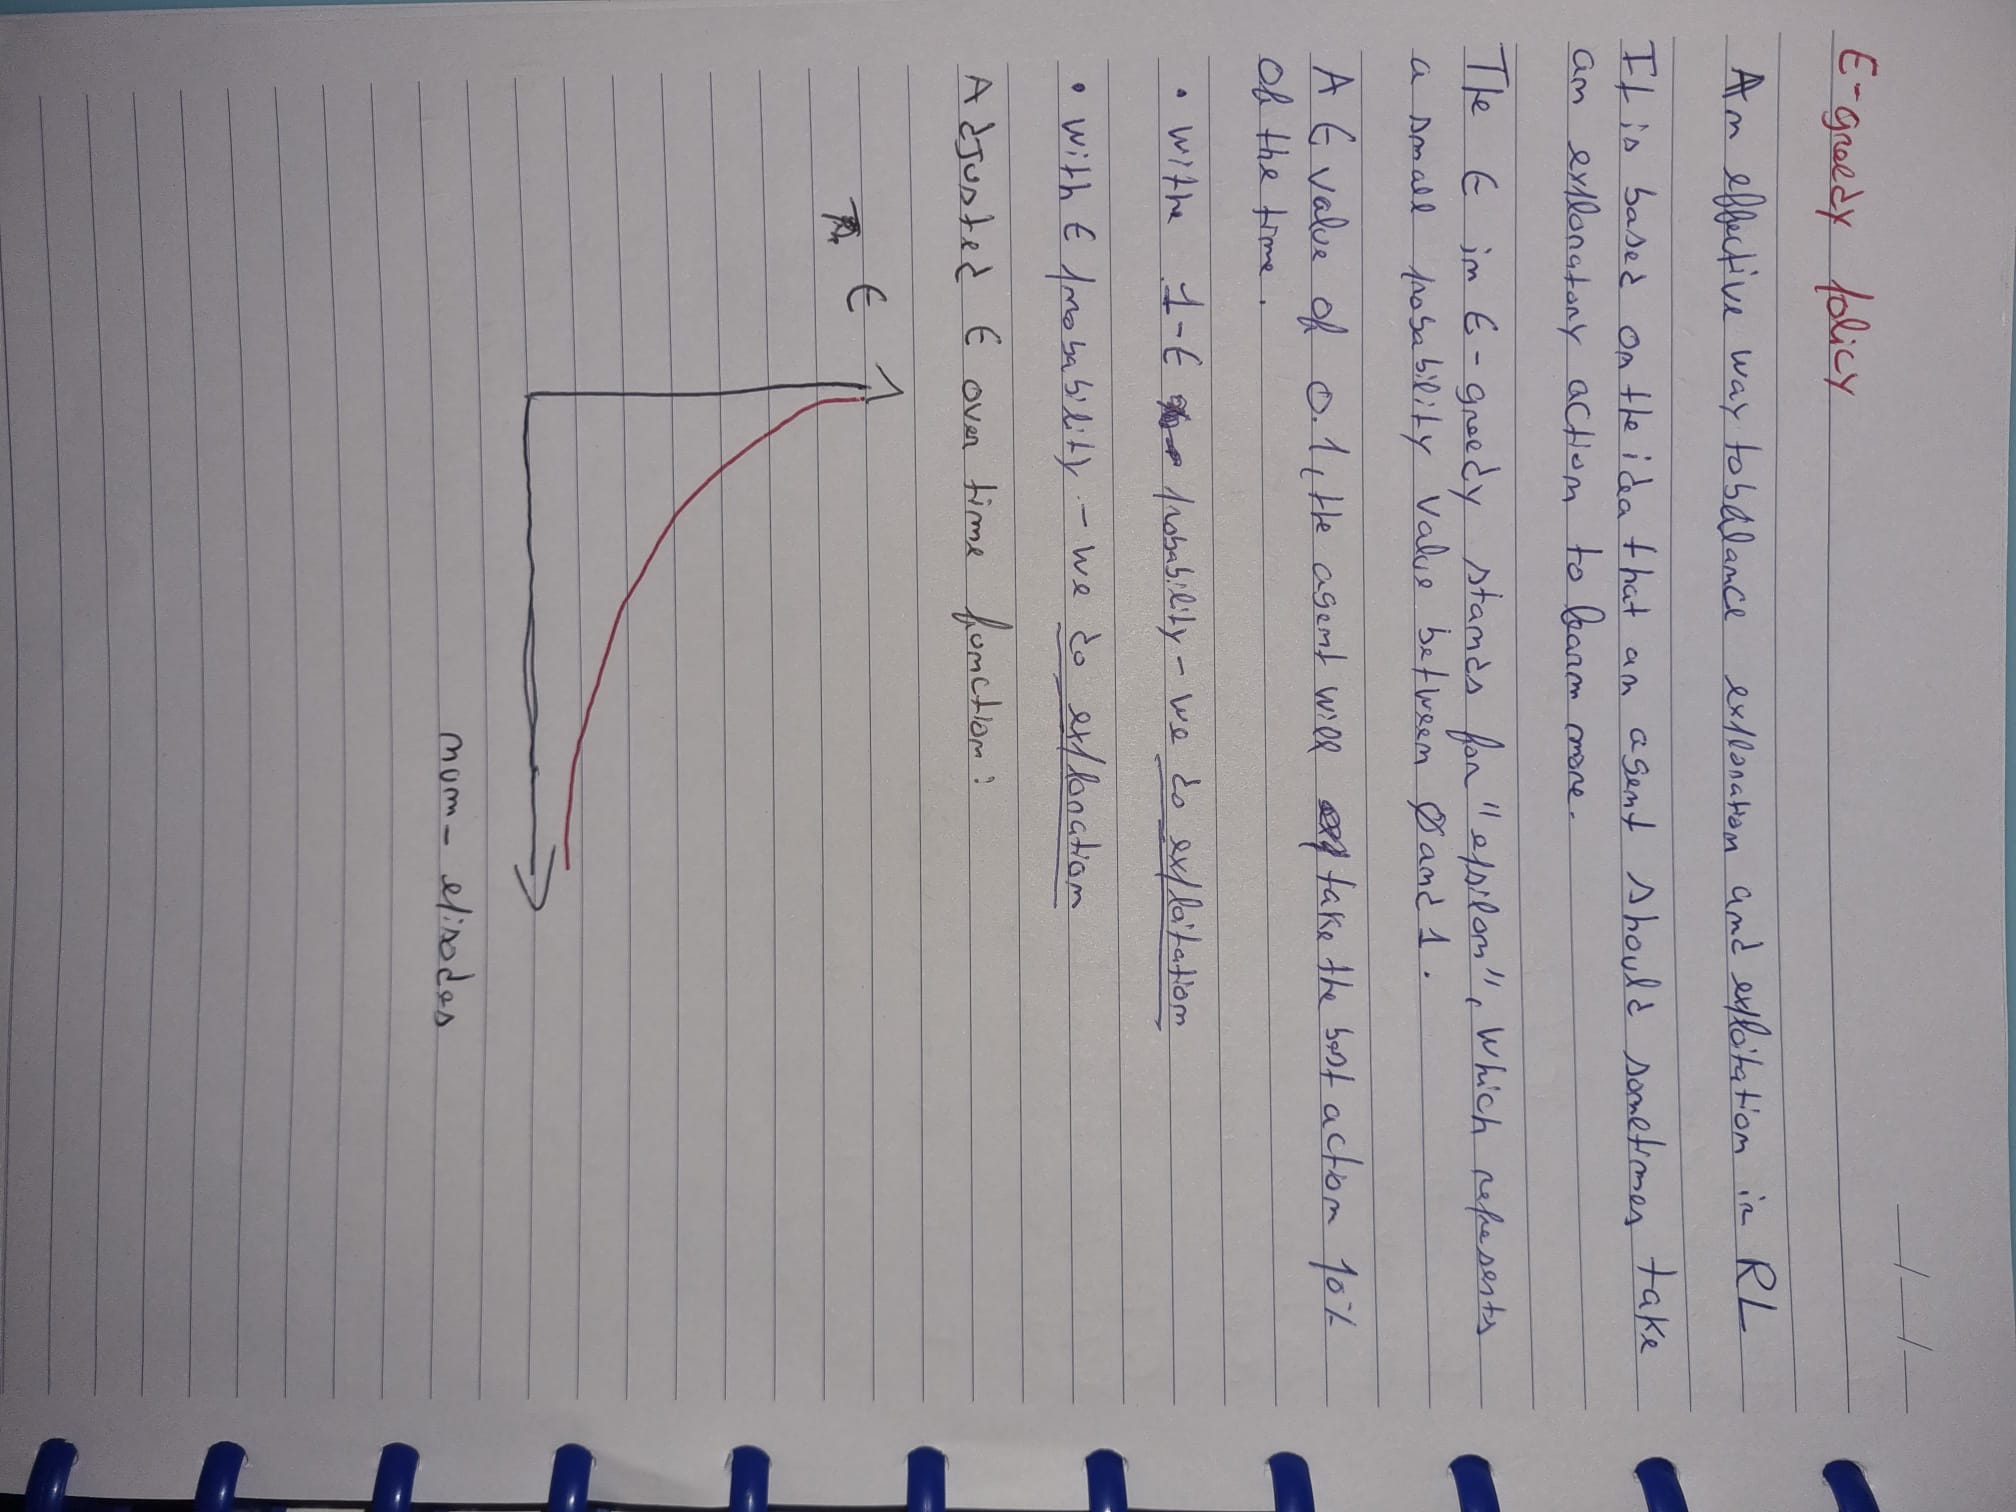 E-greedy policy
An effective way to balance exploration and exploitation in RL
It is based on the idea that an agent should sometimes take
an exploratory action to learn more.
The ϵ in ϵ-greedy stands for "epsilon", which represents
a small probability value between 0 and 1.
A ϵ value of 0.1, the agent will take the best action 10%
of the time.
• Withe 1-ϵ probability - we do exploitation
• With ϵ probability - we do exploration
Adjusted ϵ over time function:
ϵ
num_episodes